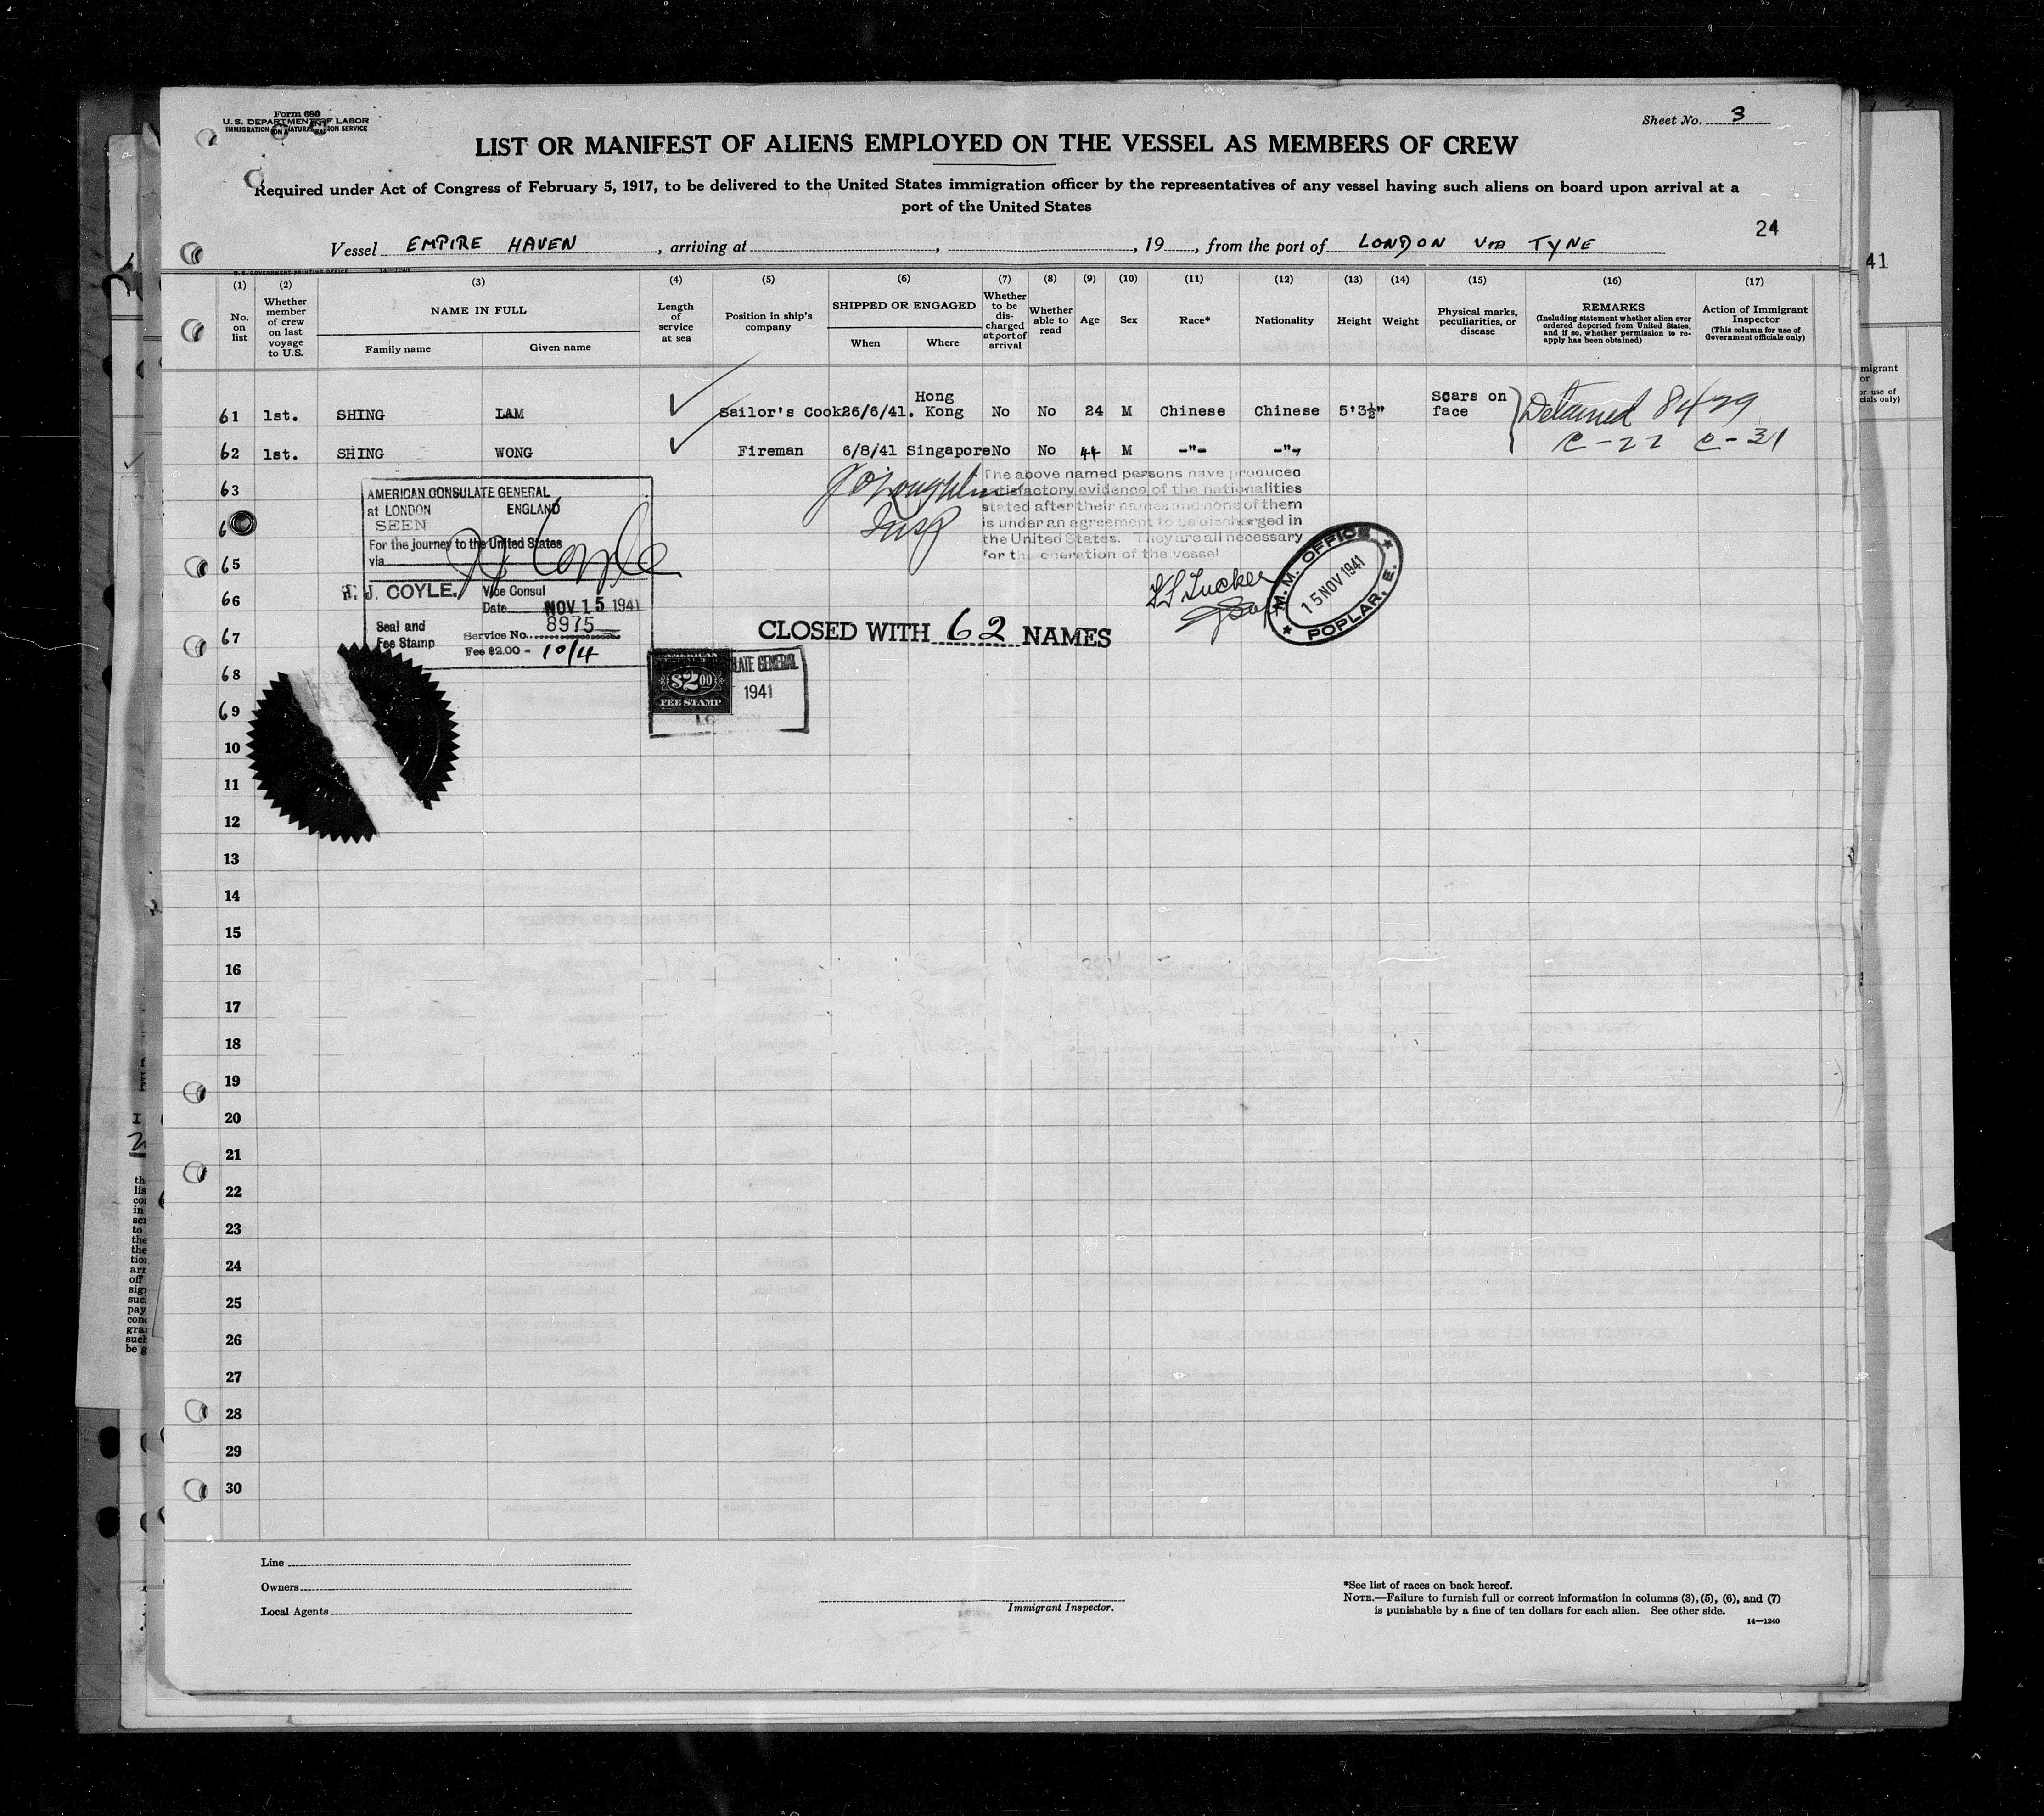 Form 680
U.S. DEPARTMENT OF LABOR
IMMIGRATION AND NATURALIZATION SERVICE
Sheet No. 3
LIST OR MANIFEST OF ALIENS EMPLOYED ON THE VESSEL AS MEMBERS OF CREW
Required under Act of Congress of February 5, 1917, to be delivered to the United States immigration officer by the representatives of any vessel having such aliens on board upon arrival at a
port of the United States
24
Vessel EMPIRE HAVEN, arriving at , , 19 , from the port of LONDON VIA TYNE
41
U.S. GOVERNMENT PRINTING OFFICE 14—1240
(1) (2) (3) (4) (5) (6) (7) (8) (9) (10) (11) (12) (13) (14) (15) (16) (17)
No. on list
Whether member of crew on last voyage to U.S.
NAME IN FULL
Family name Given name
Length of service at sea
Position in ship's company
SHIPPED OR ENGAGED
When Where
Whether to be discharged at port of arrival
Whether able to read
Age
Sex
Race*
Nationality
Height
Weight
Physical marks, peculiarities, or disease
REMARKS
(Including statement whether alien ever ordered deported from United States, and if so, whether permission to re-apply has been obtained)
Action of Immigrant Inspector
(This column for use of Government officials only)
61 1st. SHING LAM Sailor's Cook 26/6/41. Hong Kong No No 24 M Chinese Chinese 5'3½" Scars on face Detained 8429
62 1st. SHING WONG Fireman 6/8/41 Singapore No No 44 M -"- -"- C-22 C-31
63
65
66
67
68
69
AMERICAN CONSULATE GENERAL
at LONDON ENGLAND
SEEN
For the journey to the United States
via
J. J. COYLE,
Vice Consul
Date NOV 15 1941
Seal and
Fee Stamp
Service No. 8975
Fee $2.00 - 10/4
J O'Loughlin
Insp
The above named persons have produced
satisfactory evidence of the nationalities
stated after their names and none of them
is under an agreement to be discharged in
the United States. They are all necessary
for the operation of the vessel
Tucker
M. M. OFFICE
15 NOV 1941
POPLAR, E.
CLOSED WITH 62 NAMES
$2.00
FEE STAMP
LATE GENERAL
1941
10
11
12
13
14
15
16
17
18
19
20
21
22
23
24
25
26
27
28
29
30
Line
Owners
Local Agents
Immigrant Inspector.
*See list of races on back hereof.
NOTE.—Failure to furnish full or correct information in columns (3), (5), (6), and (7)
is punishable by a fine of ten dollars for each alien. See other side.
14—1240